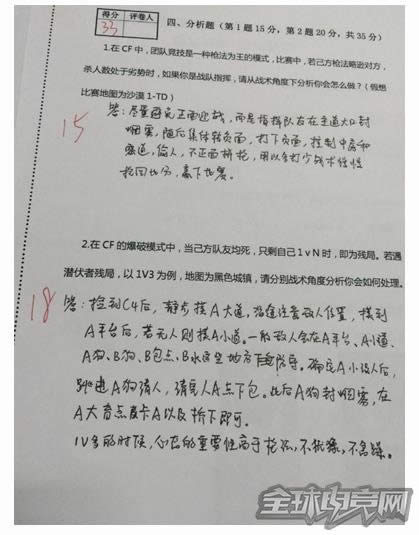 得分 评卷人
33
四、分析题（第1题15分，第2题20分，共35分）
1.在CF中，团队竞技是一种枪法为王的模式，比赛中，若己方枪法略逊对方，
杀人数处于劣势时，如果你是战队指挥，请从战术角度下分析你会怎么做？（假想
比赛地图为沙漠1-TD）
15
答：尽量避免正面迎战，而是指挥队友在主道大口封
烟雾，随后集体转负面，打下负面，控制中房和
赛道，偷人，不正面拼枪，用以多打少战术慢慢
抢回比分，赢下比赛。
2.在CF的爆破模式中，当己方队友均死，只剩自己1vN时，即为残局。若遇
潜伏者残局，以1V3为例，地图为黑色城镇，请分别战术角度分析你会如何处理。
18
答：捡到C4后，静步摸A大道，沿途注意敌人位置，摸到
A平台后，若无人则摸A小道。一般敌人会在A平台、A小道、
A狗、B狗、B包点、B水这些地方防守。确定A小没人后，
跳进A狗清人，清完人A点下包。此后A狗封烟雾，在
A大盲点反卡A以及拆下即可。
1V多的时候，心态的重要性高于枪法，不犹豫，不急躁。
全球电竞网